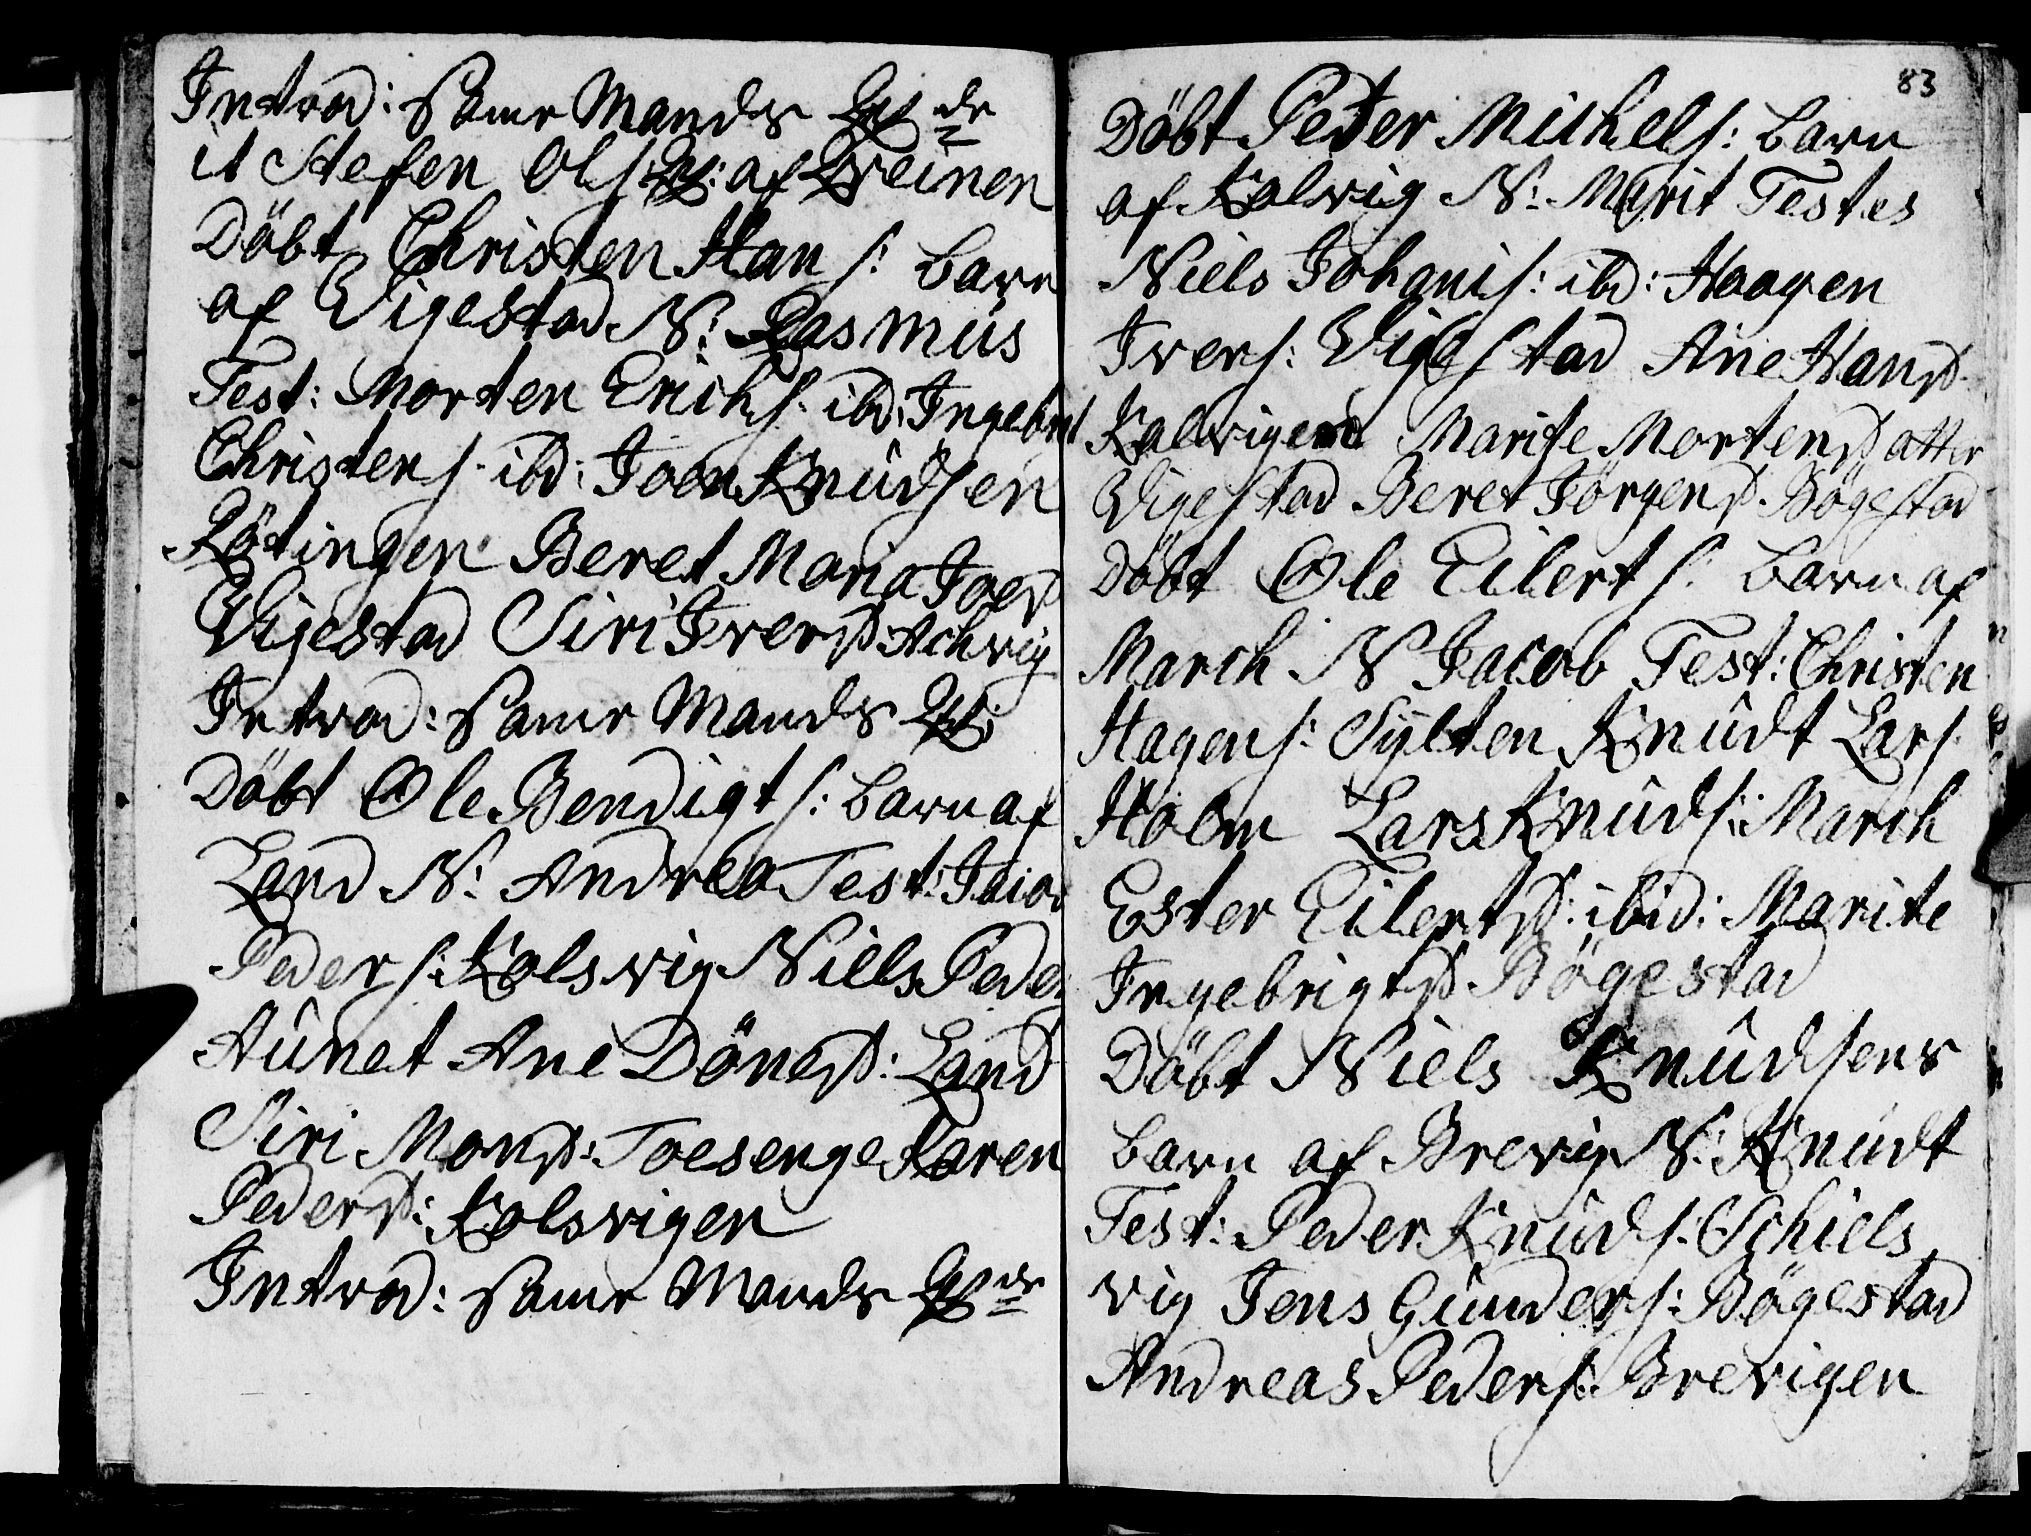 Introd: Same Mands Qv de
it Stefen Ols: Qv: af Qveinen
Döbt Christen Han s: barn
af Vigestad N: Rasmus
Test: Morten Erichs. ibd: Ingebrit
Christens. ibd: Joen Knûdsen
Rötingen Beret Maria Joesd
Vigestad Siri Iversd: Achvig
Introd: Same Mands Qv:
Döbt Ole Bendigt s: barn af
Land N: Andrea Test: Jacob
Peders: Kolsvig Niels Peder
Aûnet Ane Dönesd: Land
Siri Monsd: Toesenge Karen
Pedersd: Kolsvigen
Introd: Same Mands Qv de
83
Döbt Peter Michels: barn
af Kalvig N: Marit Testes
Niels Johanis: ibd: Haagen
Ivers: Vigestad Ane Hansd.
Kalvigen Marite Mortensdatter
Vigestad Beret Jörgensd. Bögestad
Döbt Ole Eilert s: barn af
March N Jacob Test: Christen
Hagens: Sylten Knûdt Lars
Holm Lars Knûds: March
Ester Eilertsd: ibid: Marite
Ingebrigtsd. Bögestad
Döbt Niels Knûdsens
barn af Brevig N: Knûdt
Test: Peder Knûds: Schiels
vig Jens Gûnders: Bögestad
Andreas Peders: Brevigen